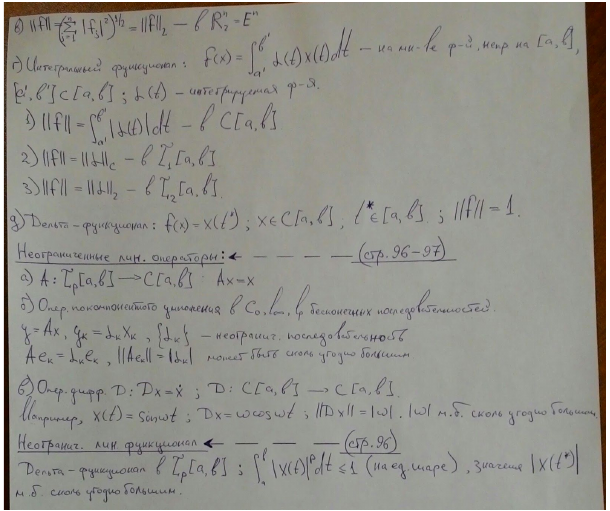 в) ||f|| = (∑_{j=1}^{n} |f_j|²)^{1/2} = ||f||₂ – в R₂ⁿ = Eⁿ
г) Интегральный функционал: f(x) = ∫_{a'}^{b'} α(t) x(t) dt – на мн-ве ф-й, непр на [a, b],
[a', b'] ⊂ [a, b]; α(t) – интегрируемая ф-я.
1) ||f|| = ∫_{a'}^{b'} |α(t)| dt – в C[a, b]
2) ||f|| = ||α||_C – в L̃₁[a, b]
3) ||f|| = ||α||₂ – в L̃₂[a, b].
д) Дельта-функционал: f(x) = x(t*); x ∈ C[a, b], t* ∈ [a, b]; ||f|| = 1.
Неограниченные лин. операторы: ← – – – – (стр. 96-97)
а) A: L̃_p[a, b] → C[a, b] Ax = x
б) Опер. покомпонентного умножения в C₀, l_∞, l_p бесконечных последовательностей.
y = Ax, y_k = α_k x_k, {α_k} – неогранич. последовательность
Ae_k = α_k e_k, ||Ae_k|| = |α_k| может быть сколь угодно большим
в) Опер. дифф. D: Dx = ẋ; D: C[a, b] → C[a, b].
Например, x(t) = sin ωt; Dx = ω cos ωt; ||Dx|| = |ω|. |ω| м.б. сколь угодно большим
Неогранич. лин. функционал ← – – – – (стр. 96)
Дельта-функционал в L̃_p[a, b]; ∫_a^b |x(t)|^p dt ≤ 1 (на ед. шаре), значение |x(t*)|
м.б. сколь угодно большим.